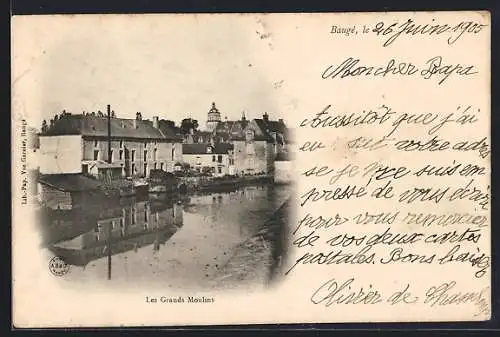 Baugé, le 26 Juin 1905
Mon cher Papa
Aussitôt que j'ai
eu su votre adres
se je me suis em
pressé de vous écrire
pour vous remercier
de vos deux cartes
postales. Bons baisers
Olivier de
Lib.-Pap. Vve Garnier, Baugé
Les Grands Moulins